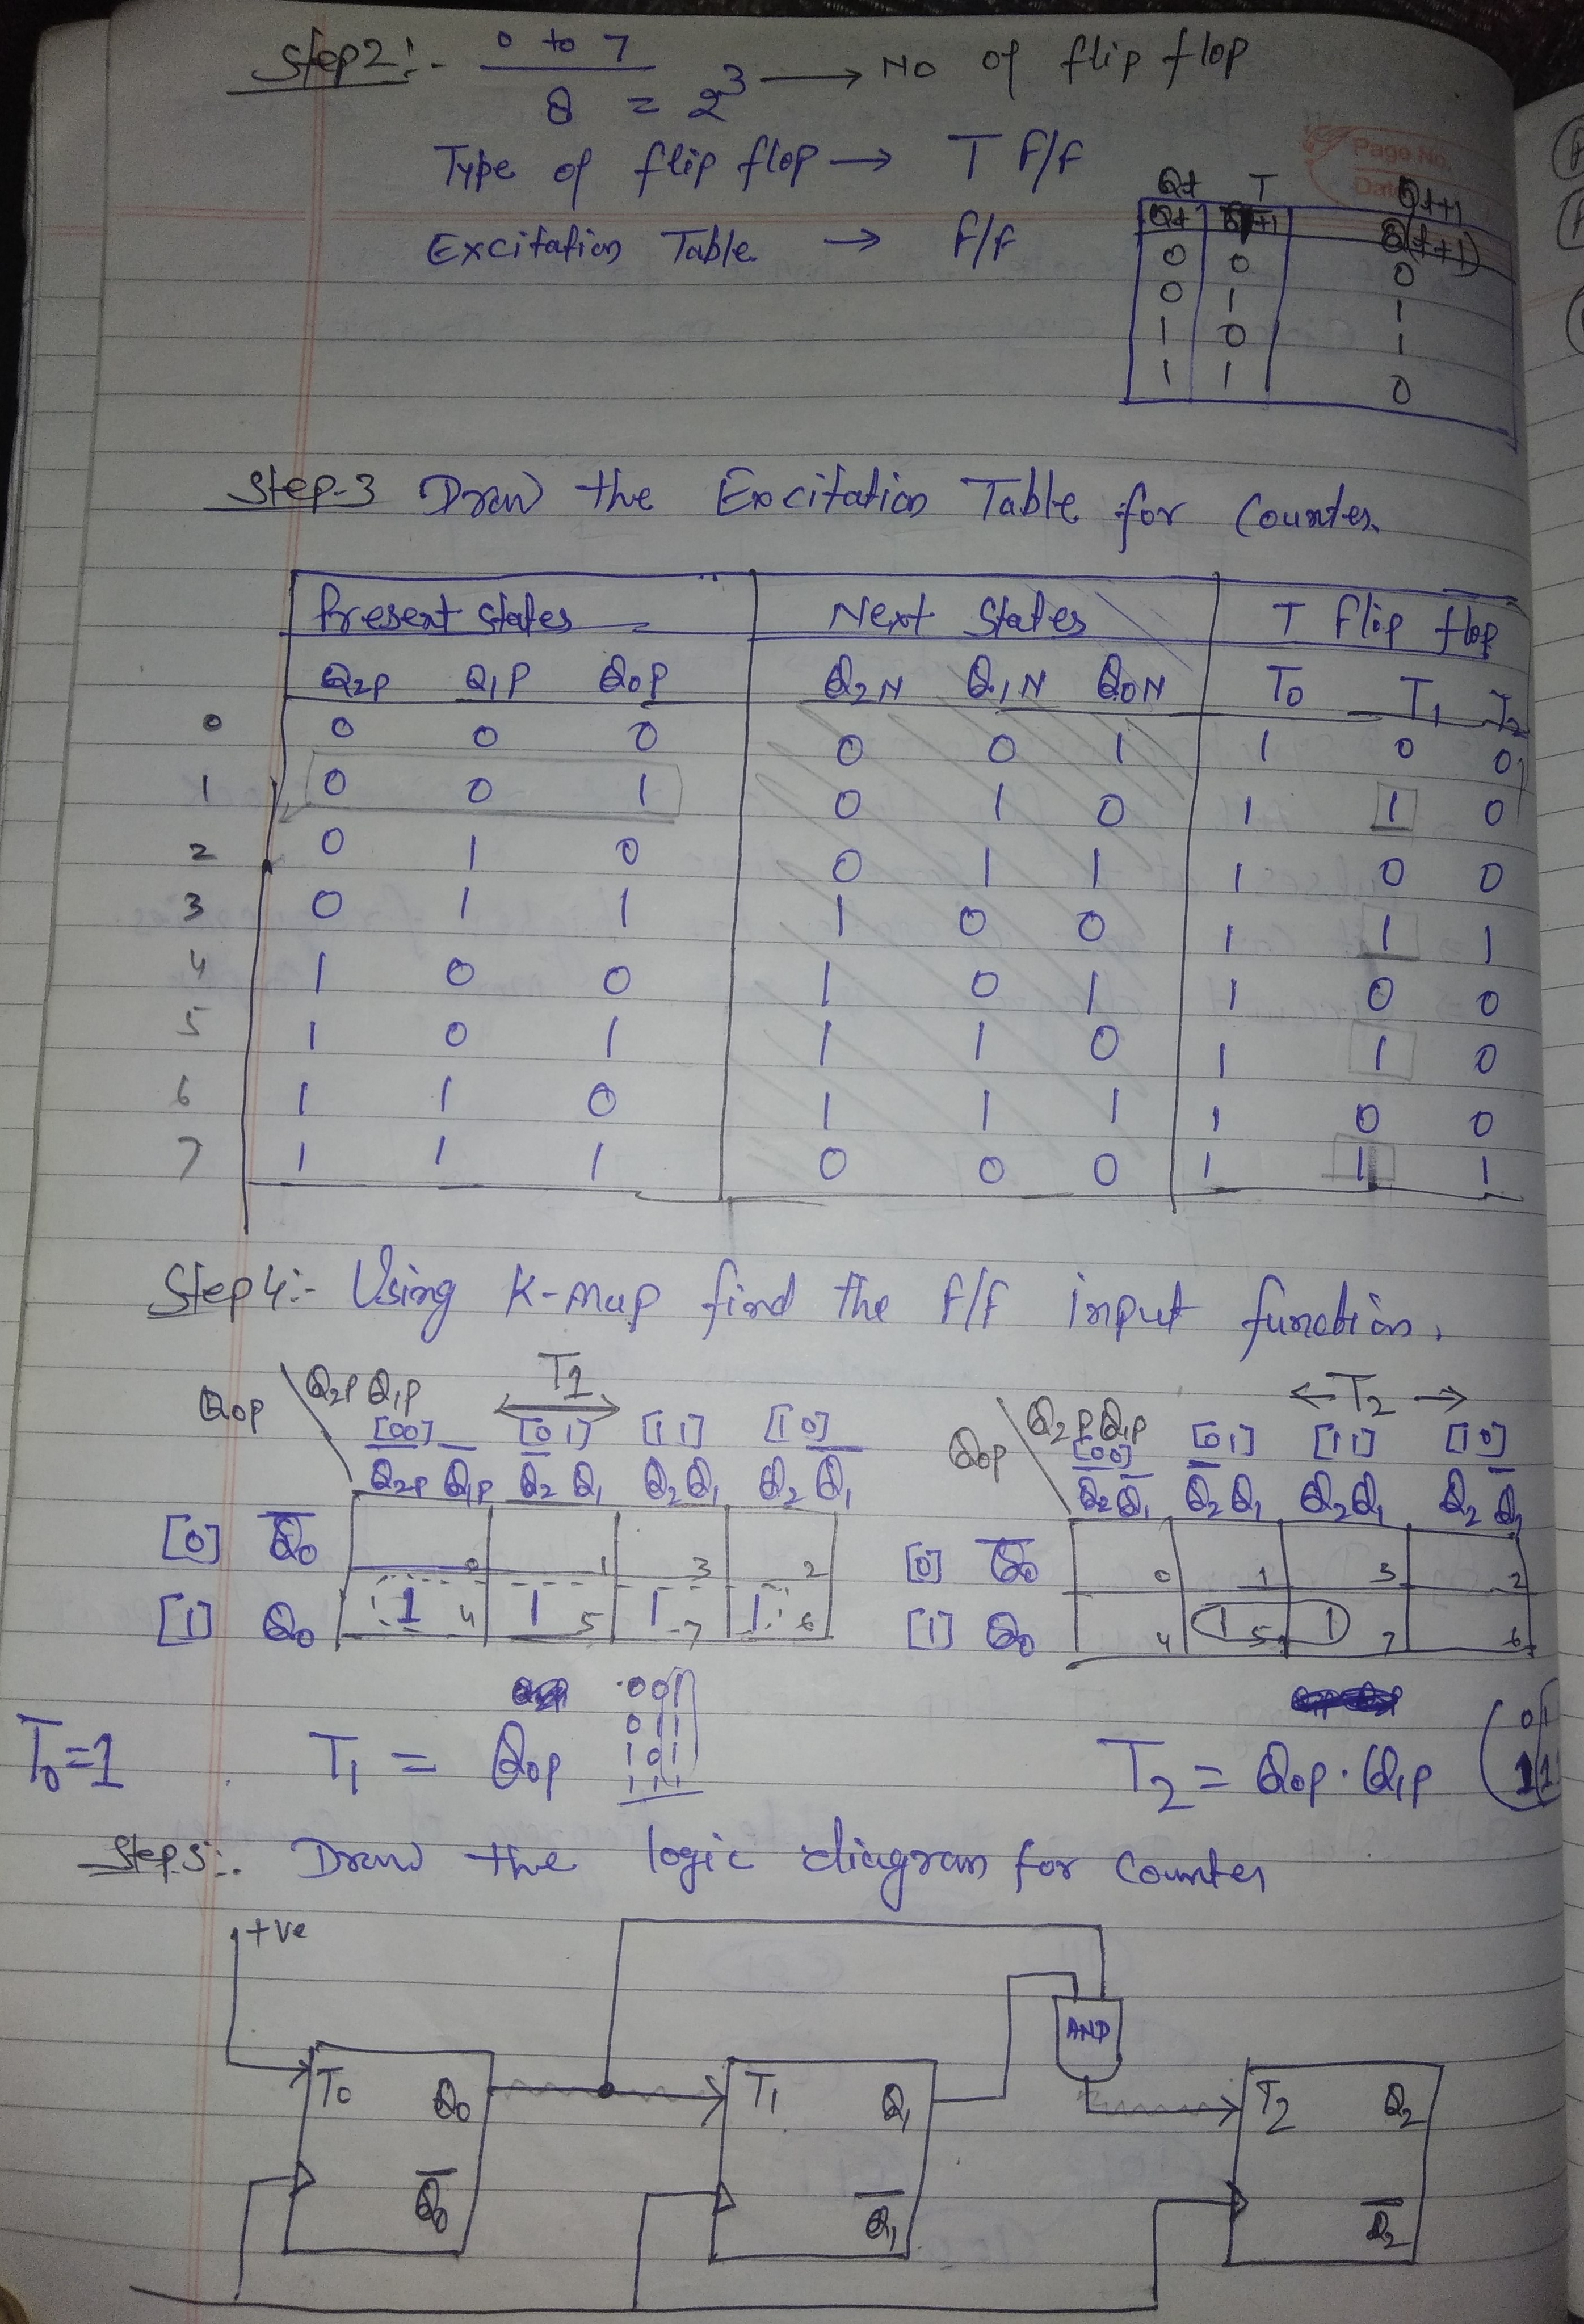 Step2:- 0 to 7
8 = 2³ → No of flip flop
Type of flip flop → T f/f
Page No.
Date
Excitation Table → f/f
Qt T Qt+1
Qt Q(t+1)
0 0 0
0 1 1
1 0 1
1 1 0
Step-3 Draw the Excitation Table for Counter.
Present States Next States T flip flop
Q2P Q1P Q0P Q2N Q1N Q0N T0 T1 T2
0 0 0 0 0 0 1 1 0 0
1 0 0 1 0 1 0 1 1 0
2 0 1 0 0 1 1 1 0 0
3 0 1 1 1 0 0 1 1 1
4 1 0 0 1 0 1 1 0 0
5 1 0 1 1 1 0 1 1 0
6 1 1 0 1 1 1 1 0 0
7 1 1 1 0 0 0 1 1 1
Step 4:- Using K-map find the f/f input function.
T1
Q0P \ Q2P Q1P
[00] [01] [11] [10]
Q̅2P Q̅1P Q̅2 Q1 Q2Q1 Q2 Q̅1
[0] Q̅0 0 1 3 2
[1] Q0 1 4 1 5 1 7 1 6
←T2→
Q0P \ Q2P Q1P
[00] [01] [11] [10]
Q̅2 Q̅1 Q̅2 Q1 Q2Q1 Q2 Q̅1
[0] Q̅0 0 1 3 2
[1] Q0 4 1 5 1 7 6
001
011
101
111
T0=1 T1 = Q0P T2 = Q0P.Q1P
01
11
Step 5:. Draw the logic diagram for Counter
+ve
AND
T0 Q0 T1 Q1 T2 Q2
Q̅0 Q̅1 Q̅2